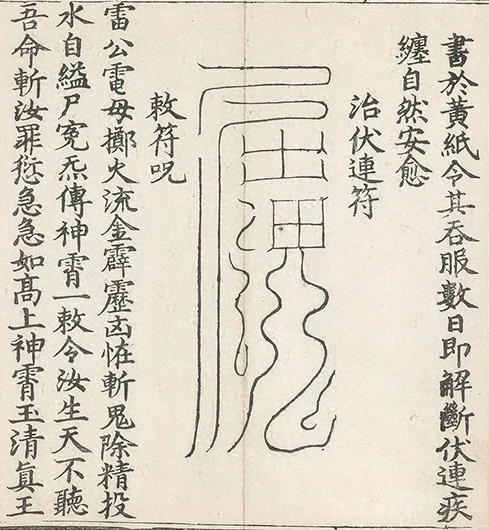 書於黃紙令其吞服數日即解斷伏連疾
纏自然安愈
治伏連符
敕符呪
雷公電母擲火流金霹靂凶恠斬鬼除精投
水自縊尸寃炁傳神霄一敕令汝生天不聽
吾命斬汝罪愆急急如高上神霄玉清眞王